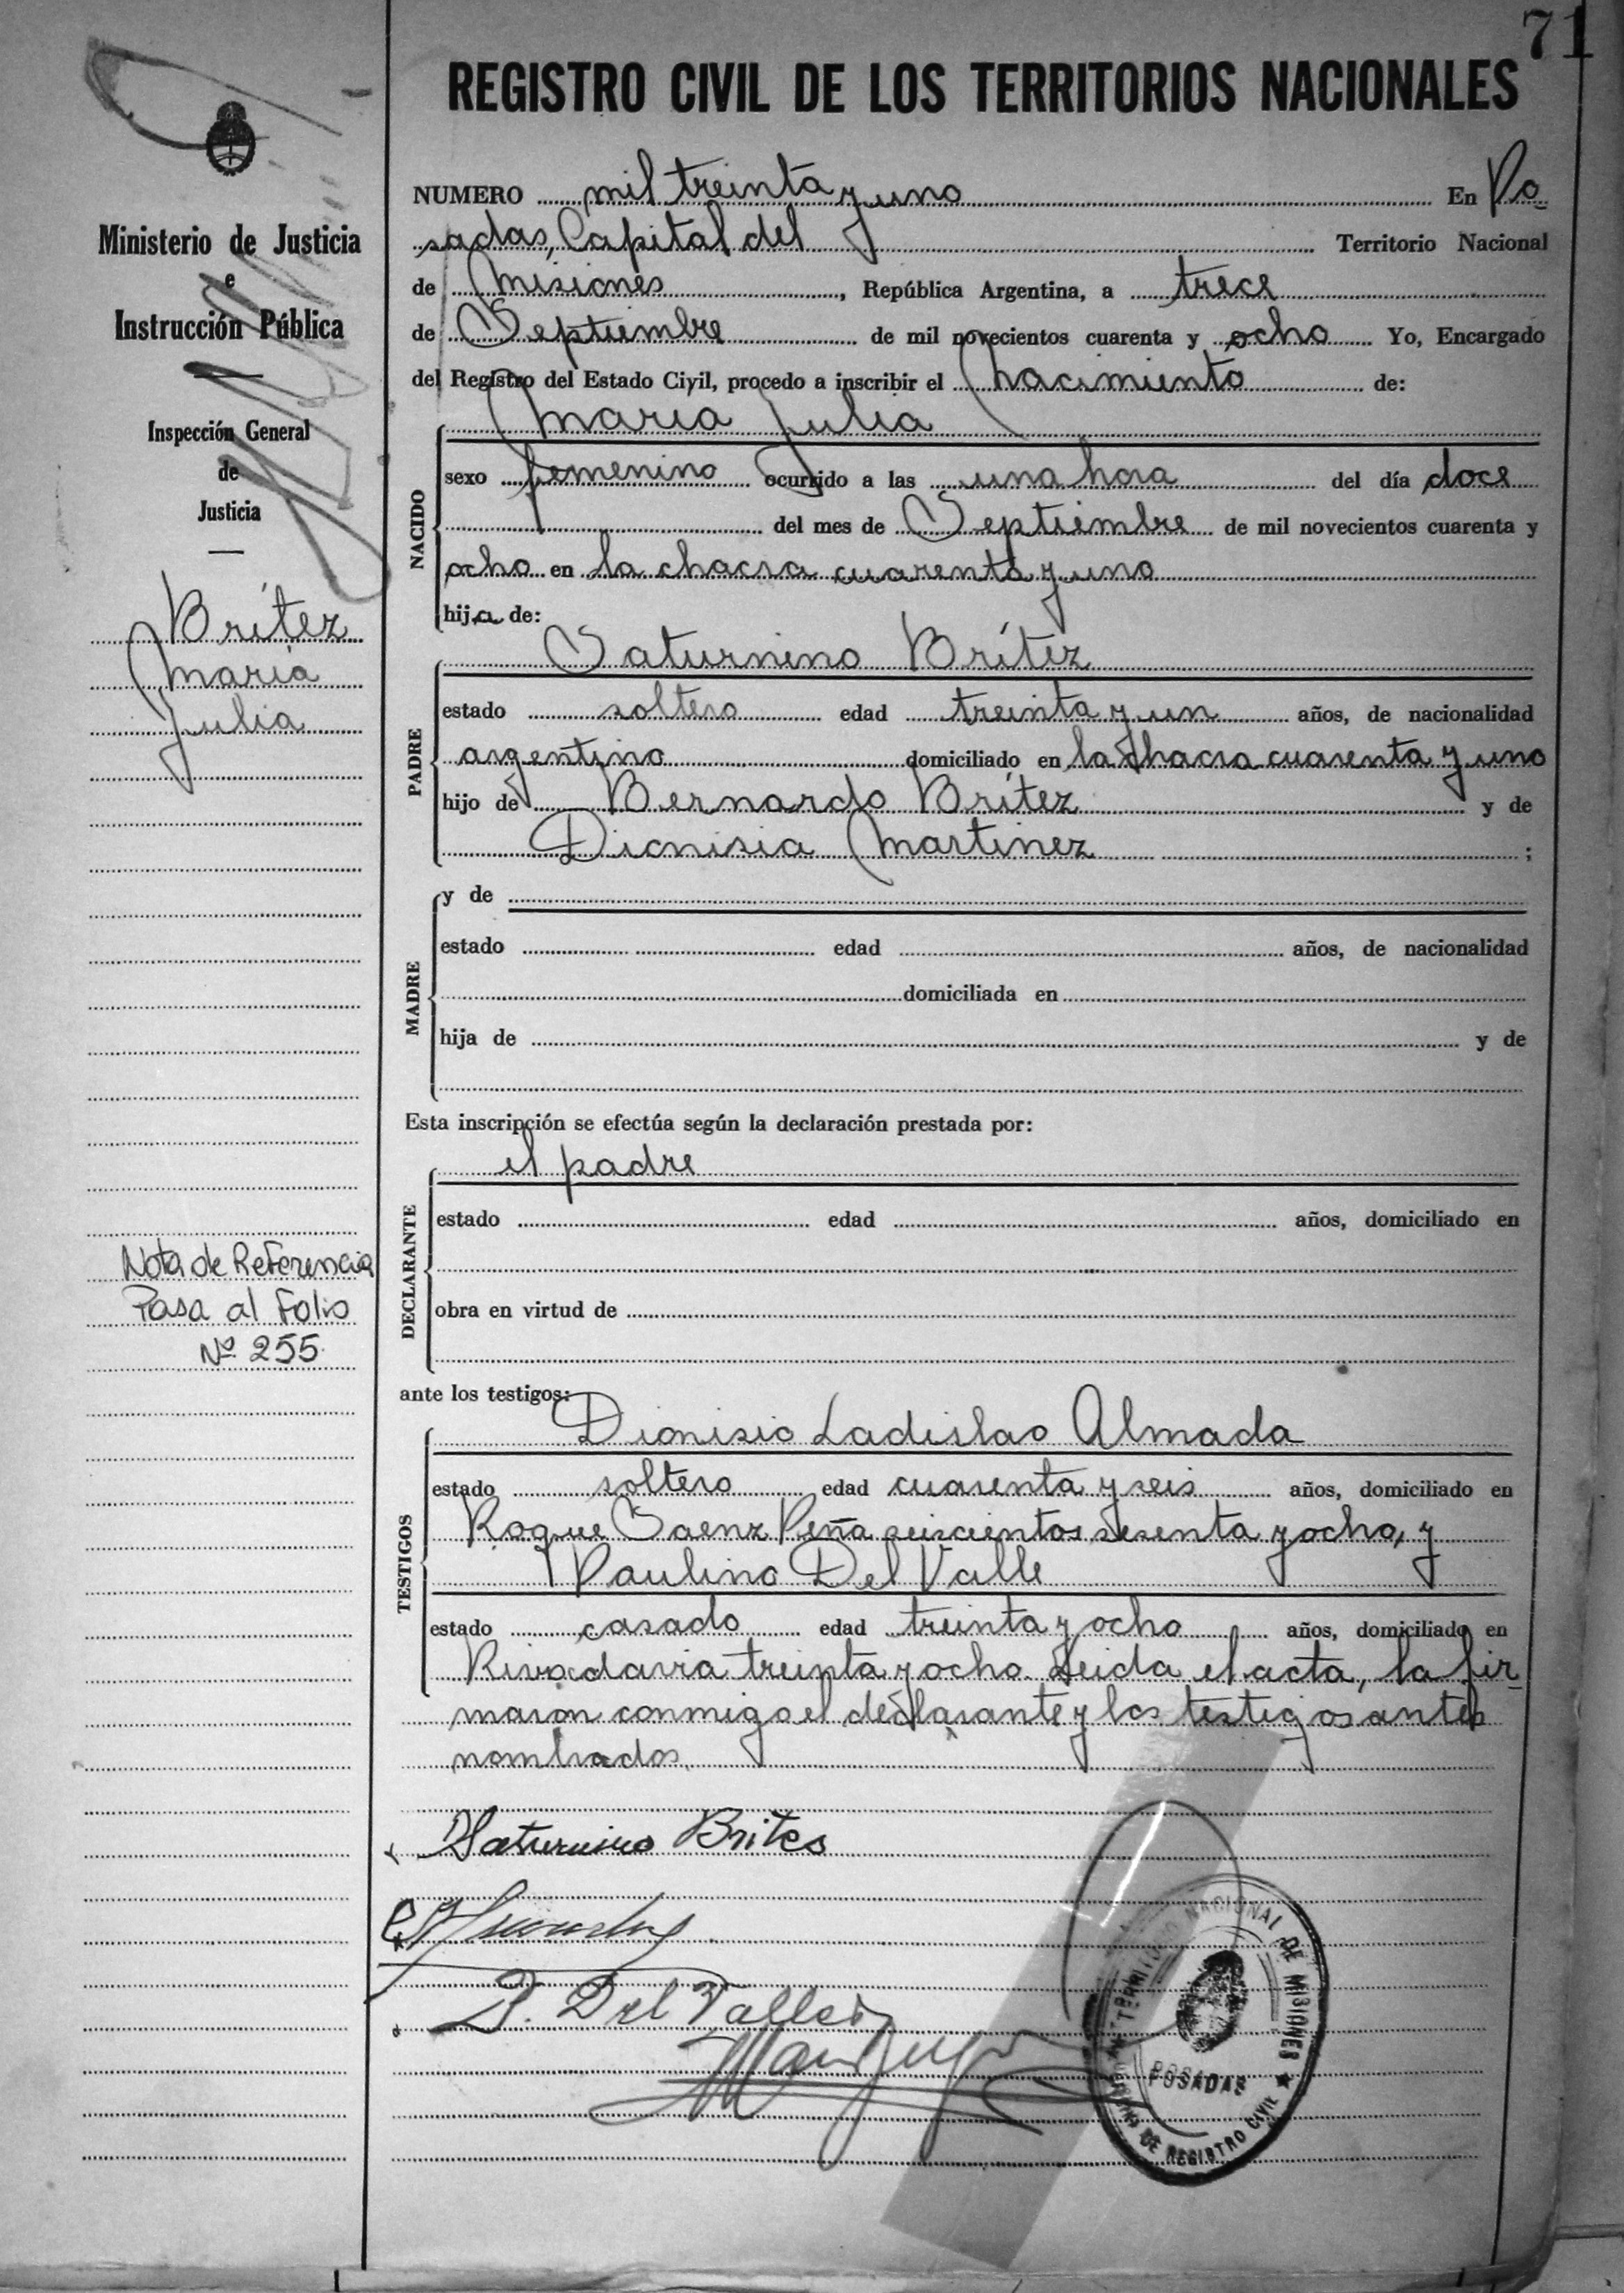 71
REGISTRO CIVIL DE LOS TERRITORIOS NACIONALES
Ministerio de Justicia
e
Instrucción Pública
Inspección General
de
Justicia
Brítez
María
Julia
Nota de Referencia
Pasa al Folio
Nº 255
NUMERO mil treinta y uno En Po-
sadas, Capital del Territorio Nacional
de Misiones, República Argentina, a trece
de Septiembre de mil novecientos cuarenta y ocho Yo, Encargado
del Registro del Estado Civil, procedo a inscribir el nacimiento de:
María Julia
NACIDO
sexo femenino ocurrido a las una hora del día doce
del mes de Septiembre de mil novecientos cuarenta y
ocho en la chacra cuarenta y uno
hija de:
Saturnino Brítez
PADRE
estado soltero edad treinta y un años, de nacionalidad
argentino domiciliado en la chacra cuarenta y uno
hijo de Bernardo Brítez y de
Dionisia Martinez ;
MADRE
y de
estado edad años, de nacionalidad
domiciliada en
hija de y de
Esta inscripción se efectúa según la declaración prestada por:
el padre
DECLARANTE
estado edad años, domiciliado en
obra en virtud de
ante los testigos:
Dionisio Ladislao Almada
TESTIGOS
estado soltero edad cuarenta y seis años, domiciliado en
Roque Saenz Peña seiscientos sesenta y ocho, y
Paulino Del Valle
estado casado edad treinta y ocho años, domiciliado en
Rivadavia treinta y ocho. Leida el acta, la fir-
maron conmigo el declarante y los testigos antes
nombrados.
Saturnino Brites
P. Del Valle
TERRITORIO NACIONAL DE MISIONES
POSADAS
DE REGISTRO CIVIL